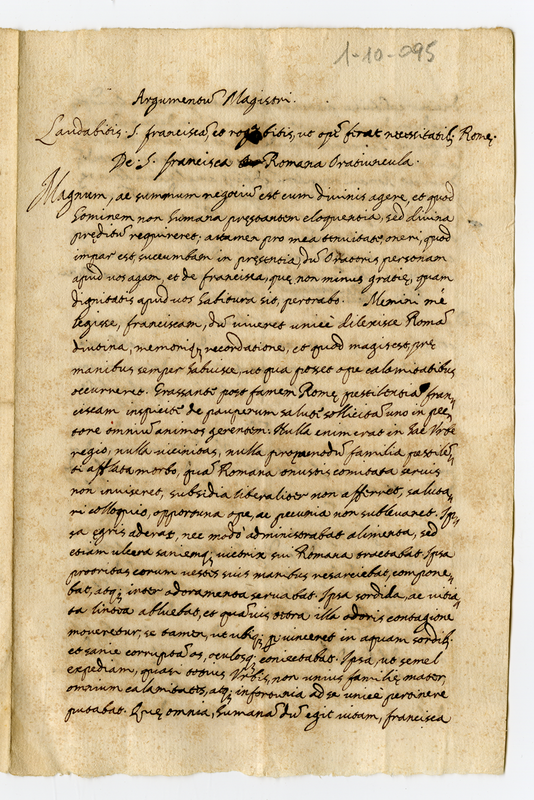 1-10-095
Argumentũ Magistri.
Laudabitis S. Franciscã, et rogabitis, ut opẽ ferat necessitatib; Romę.
De S. Francisca Romana Oratiuncula.
Magnum, ac summum negotiũ est cum divinis agere, et quod
hominem non humana pręstantem eloquentia, sed divina
pręditũ requireret; attamen pro mea tenuitate oneri, quod
impar est, succumbam in pręsentia, dũ Oratoris personam
apud vos agam, et de Francisca, quę non minus gratię, quam
dignitatis apud vos habitura sit, perorabo. Memini mé
legisse, Franciscam, dũ viveret unicè dilexisse Romã
diutina, memoriq; recordatione, et quod magis est, prę
manibus semper habuisse, ut qua posset ope calamitatibus
occurreret. Grassantẽ post famem Romę pestilentiã Fran„
ciscam inspicitẽ de pauperum salutẽ sollicitã uno in pec„
tore omniũ animos gerentem. Nulla enim erat in hac Urbe
regio, nulla vicinitas, nulla propemodũ familia pestilẽ„
ti afflata morbo, quã Romana onustis comitata servis
non inviseret, subsidia liberaliter non afferret, saluta„
ri colloquio, opportuna ope, ac pecunia non sublevaret. Ip„
sa ęgris aderat, nec modò administrabat alimenta, sed
etiam ulcera saniemq; victrix sui Romana tractabat. Ipsa
protritas eorum vestes suis manibus resarciebat, compone„
bat, atq; inter odoramenta servabat. Ipsa sordida, ac vitia„
ta lintea abluebat, et quãvis tetra illa odoris contagione
moveretur, se tamen, ac ubiq; pervinceret in aquam sordib;
et sanie corruptã os, oculosq; coniectabat. Ipsa, ut semel
expediam, quasi totius Urbis, non unius familię mater,
omnium calamitates, atq; infortunia ad se unicè pertinere
putabat. Quę omnia, humanã dũ egit vitam, Francisca